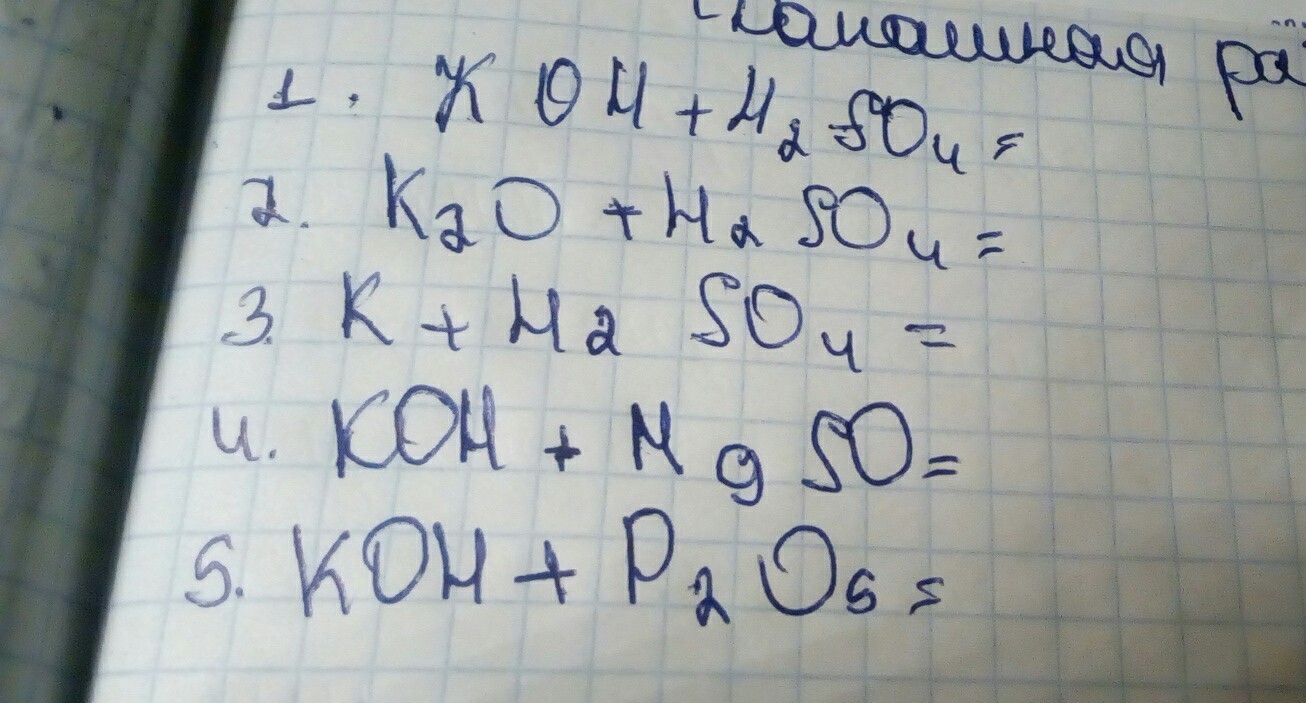 Домашная
1. KOH + H2SO4 =
2. K2O + H2SO4 =
3. K + H2SO4 =
4. KOH + MgSO =
5. KOH + P2O5 =